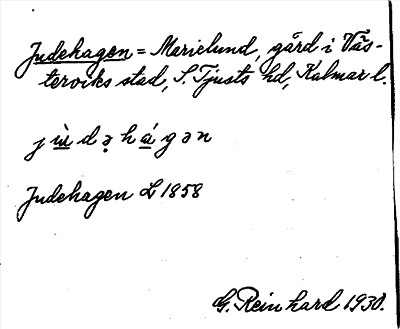 Judehagen = Marielund, gård i Väs-
terviks stad, S. Tjusts hd, Kalmar l.
jùdəhágən
Judehagen L 1858
G. Reinhard 1930.